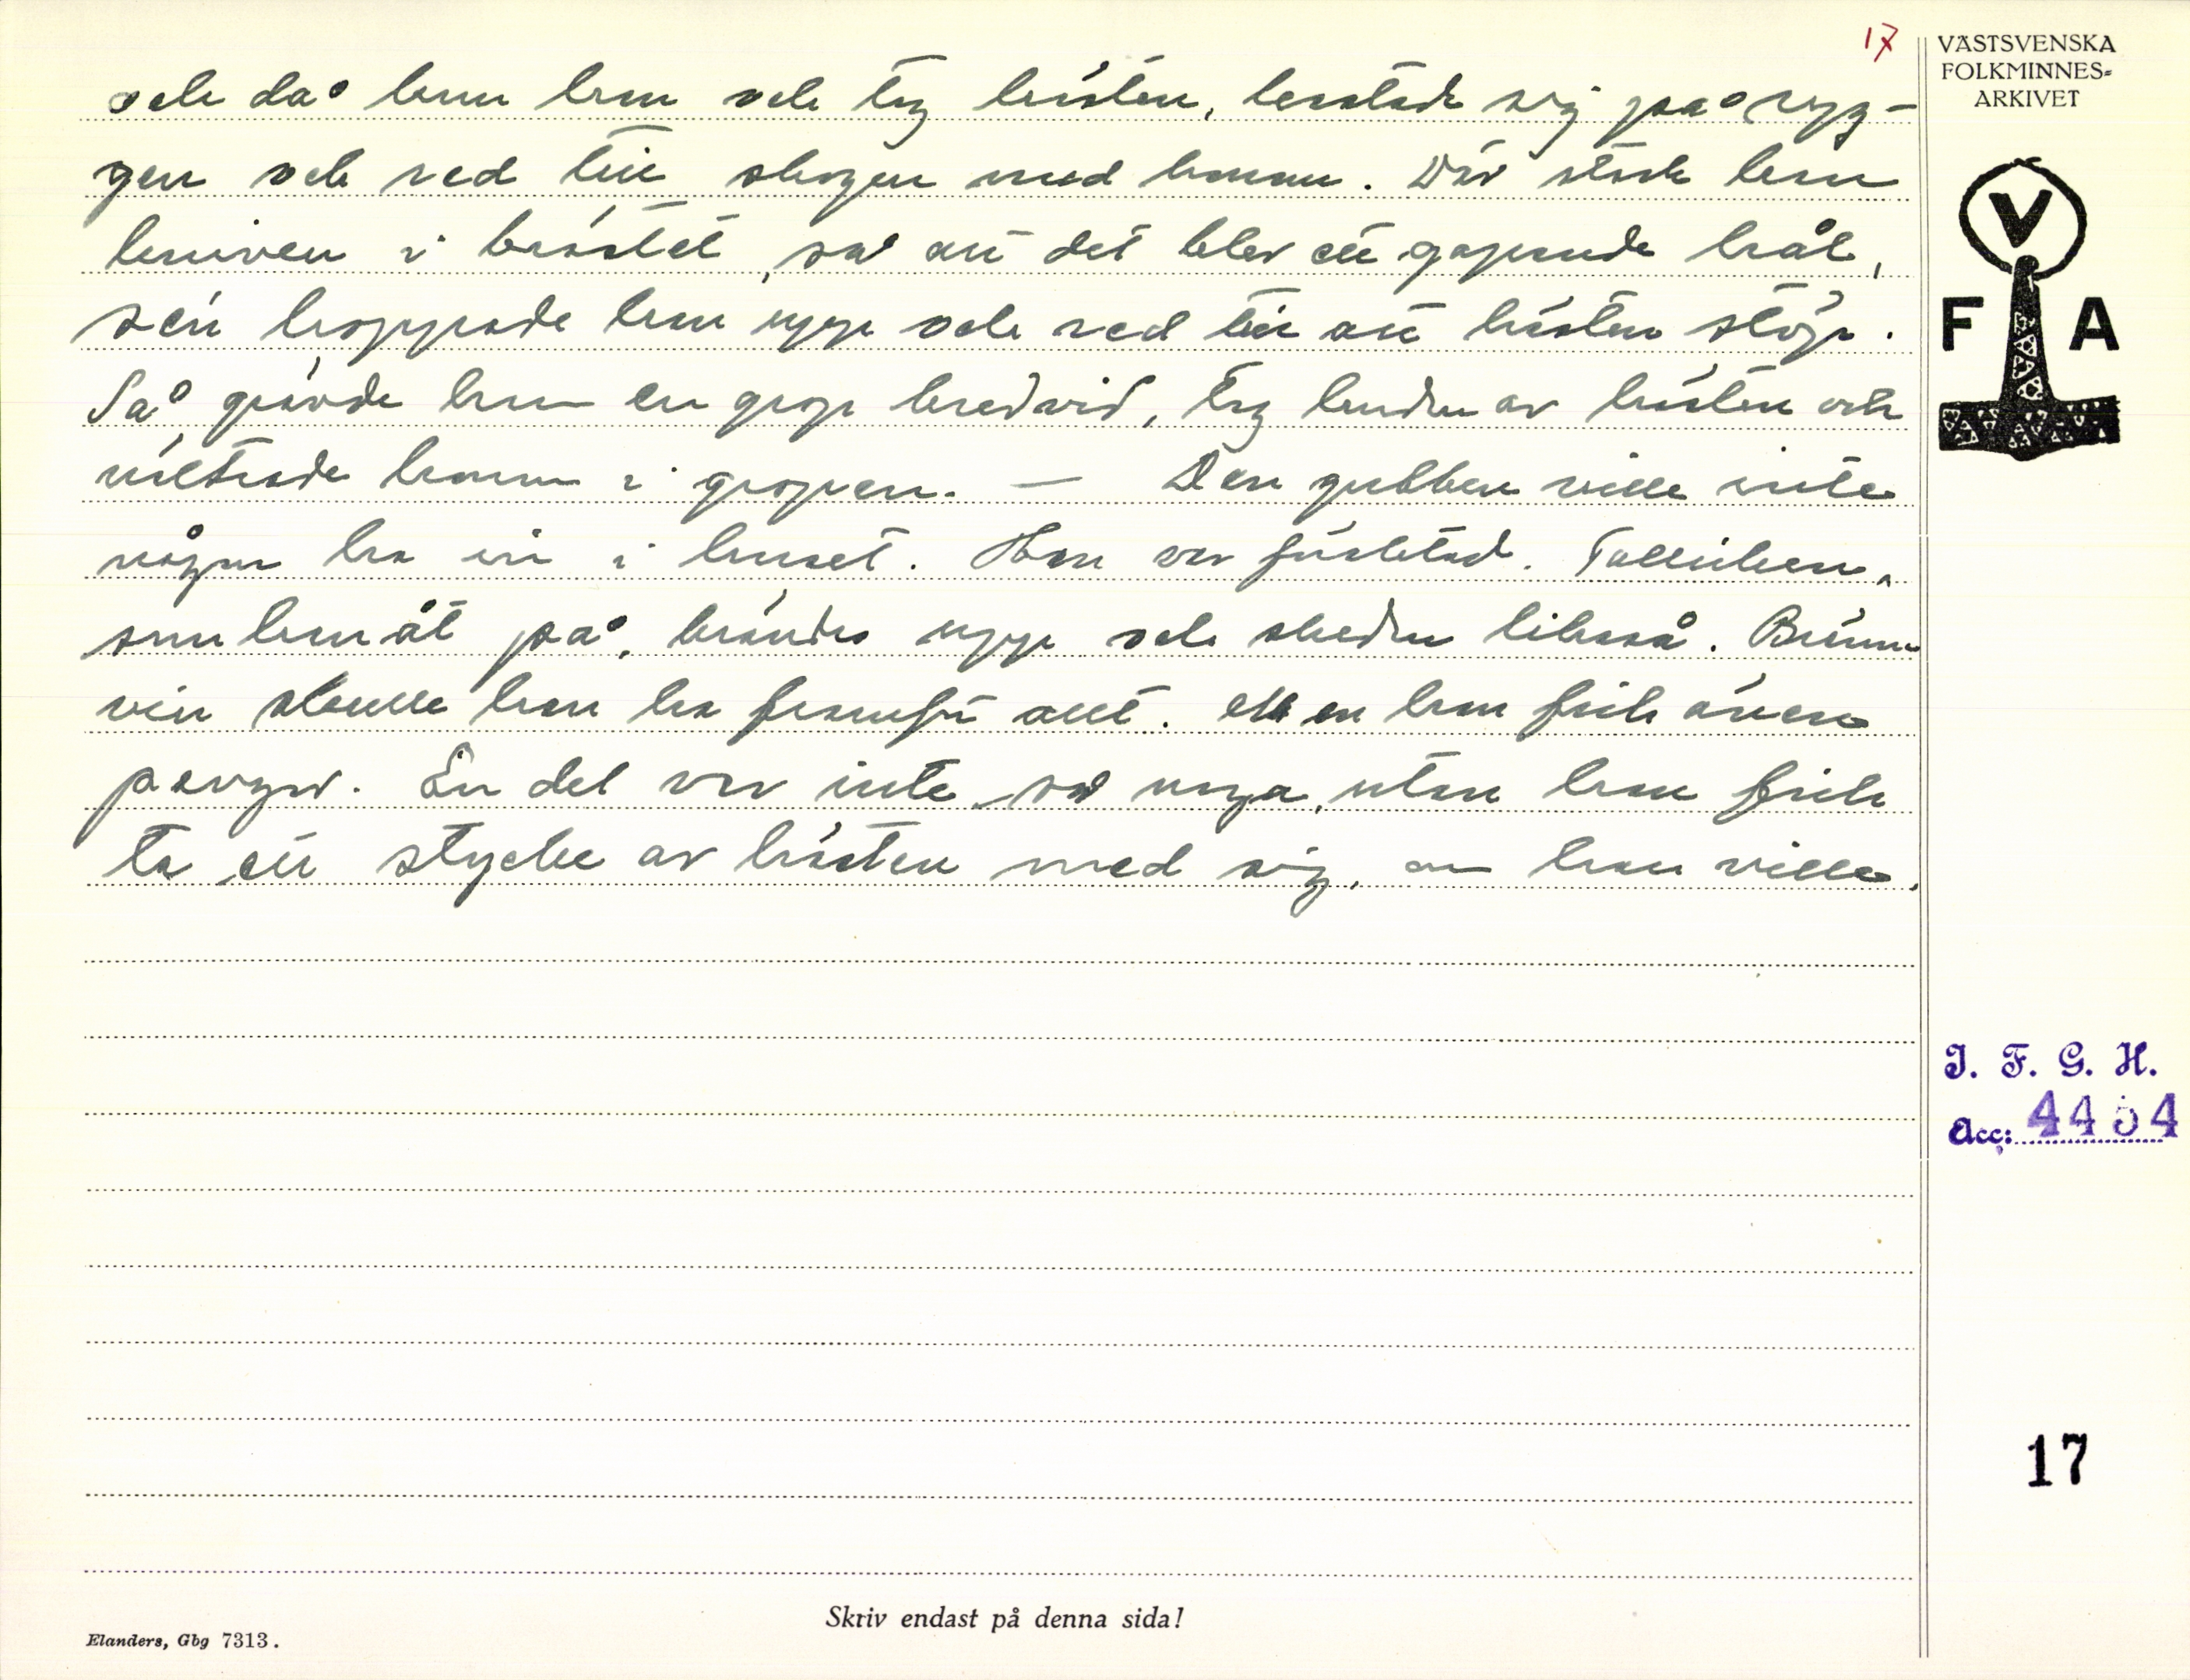 17
VÄSTSVENSKA
FOLKMINNES=
ARKIVET
och då kom han och tog hästen, kastade sig på ryg-
gen och red till skogen med honom. Där stack han
kniven i bröstet, så att det blev ett gapande hål,
sen hoppade han upp och red till att hästen stöp.
Så grävde han en grop bredvid, tog huden av hästen och
vältrade honom i gropen. — Den gubben ville inte
någon ha in i huset. Han var föraktad. Talliken,
som han åt på, brändes upp och skeden likaså. Bränn-
vin skulle han ha framför allt. Men han fick även
pengar. En del var inte så noga, utan han fick
ta ett stycke av hästen med sig, om han ville.
V
F A
I. F. G. H.
Acc: 4454
17
Skriv endast på denna sida!
Elanders, Gbg 7313.